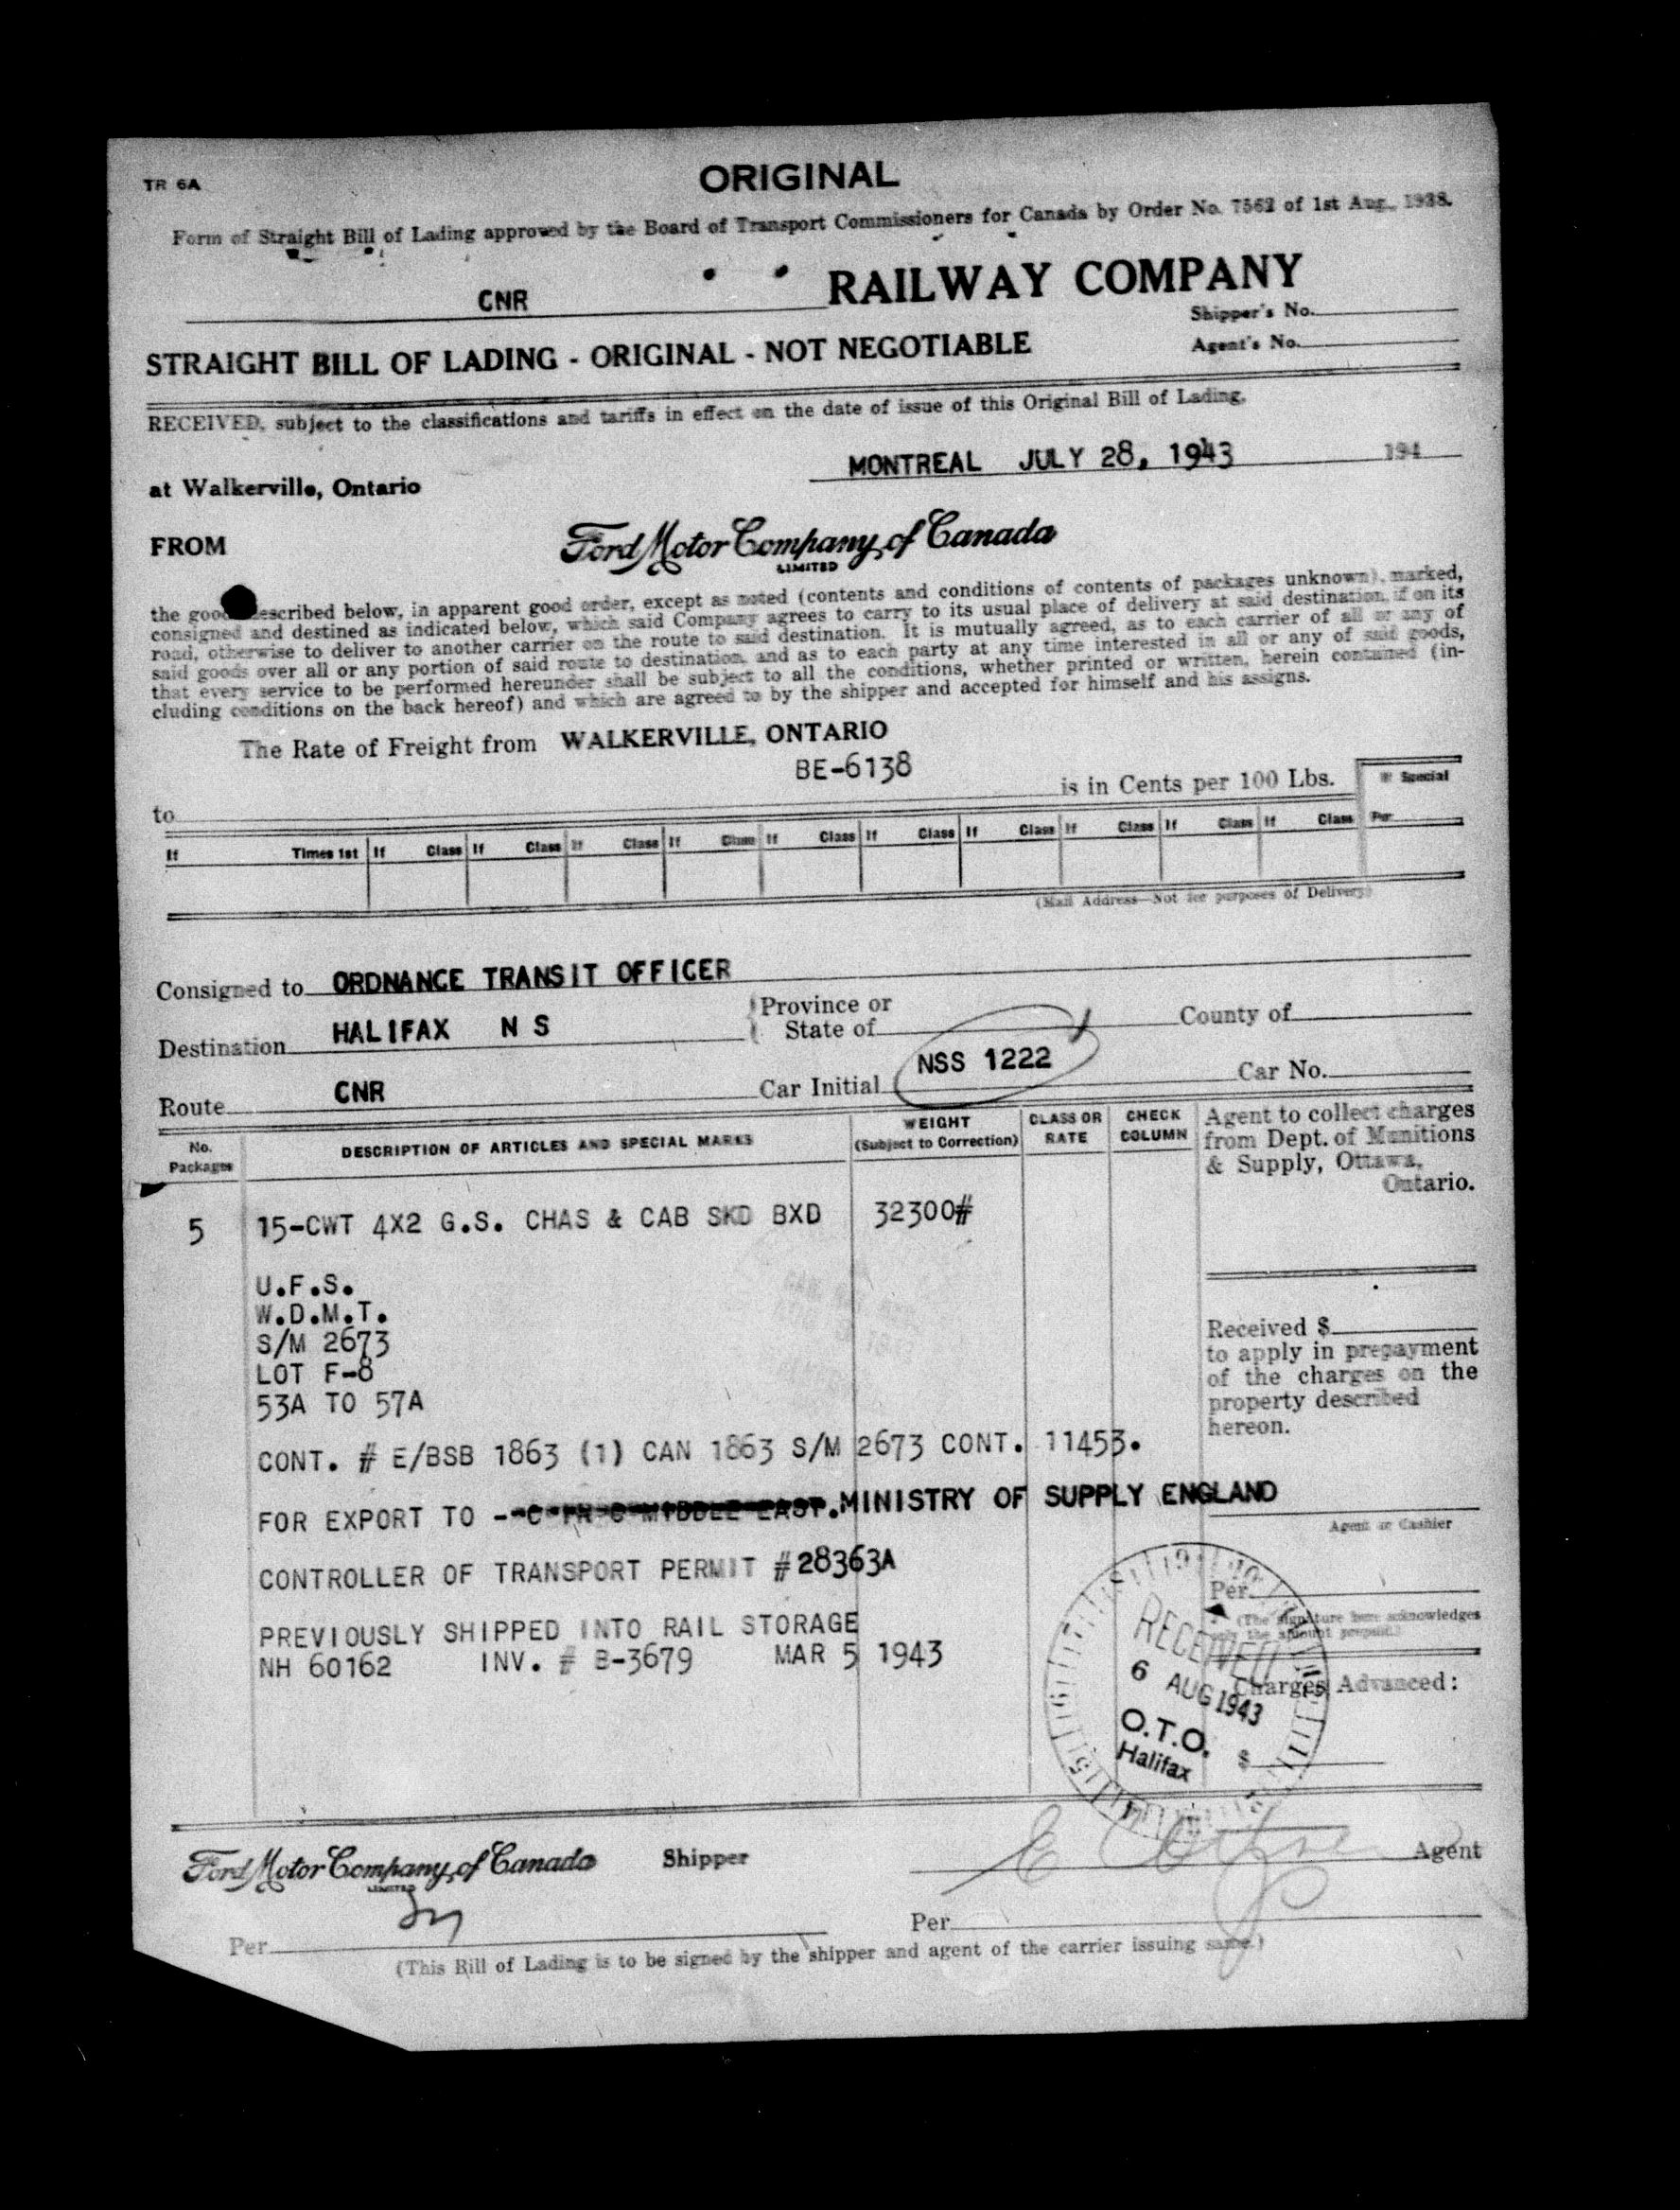 TR 6A
ORIGINAL
Form of Straight Bill of Lading approved by the Board of Transport Commissioners for Canada by Order No. 7562 of 1st Aug., 1938.
CNR RAILWAY COMPANY
Shipper's No.
STRAIGHT BILL OF LADING - ORIGINAL - NOT NEGOTIABLE
Agent's No.
RECEIVED, subject to the classifications and tariffs in effect on the date of issue of this Original Bill of Lading,
MONTREAL JULY 28, 1943 194
at Walkerville, Ontario
FROM Ford Motor Company of Canada
LIMITED
the goods described below, in apparent good order, except as noted (contents and conditions of contents of packages unknown), marked,
consigned and destined as indicated below, which said Company agrees to carry to its usual place of delivery at said destination, if on its
road, otherwise to deliver to another carrier on the route to said destination. It is mutually agreed, as to each carrier of all or any of
said goods over all or any portion of said route to destination, and as to each party at any time interested in all or any of said goods,
that every service to be performed hereunder shall be subject to all the conditions, whether printed or written, herein contained (in-
cluding conditions on the back hereof) and which are agreed to by the shipper and accepted for himself and his assigns.
The Rate of Freight from WALKERVILLE, ONTARIO
BE-6138
to is in Cents per 100 Lbs.
If Special
If Times 1st If Class If Class If Class If Class If Class If Class If Class If Class If Class If Class Per
(Mail Address—Not for purposes of Delivery)
Consigned to ORDNANCE TRANSIT OFFICER
Destination HALIFAX N S
Province or
State of
County of
Route CNR
Car Initial NSS 1222
Car No.
No.
Packages
DESCRIPTION OF ARTICLES AND SPECIAL MARKS
WEIGHT
(Subject to Correction)
CLASS OR
RATE
CHECK
COLUMN
Agent to collect charges
from Dept. of Munitions
& Supply, Ottawa,
Ontario.
5 15-CWT 4X2 G.S. CHAS & CAB SKD BXD 32300#
U.F.S.
W.D.M.T.
S/M 2673
LOT F-8
53A TO 57A
Received $
to apply in prepayment
of the charges on the
property described
hereon.
CONT. # E/BSB 1863 (1) CAN 1863 S/M 2673 CONT. 11453.
FOR EXPORT TO - MIDDLE EAST. MINISTRY OF SUPPLY ENGLAND
Agent or Cashier
CONTROLLER OF TRANSPORT PERMIT #28363A
Per
(The signature here acknowledges
only the amount prepaid.)
PREVIOUSLY SHIPPED INTO RAIL STORAGE
NH 60162 INV. # B-3679 MAR 5 1943
Charges Advanced:
$
RECEIVED
6 AUG 1943
O.T.O.
Halifax
Ford Motor Company of Canada Shipper
LIMITED
Agent
Per
Per
(This Bill of Lading is to be signed by the shipper and agent of the carrier issuing same.)